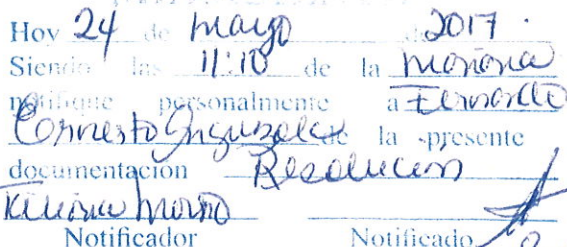 Hoy 24 de mayo de 2017.
Siendo las 11:10 de la mañana
notifique personalmente a Fernando
Ernesto de la presente
documentación Resolución
Notificador Notificado